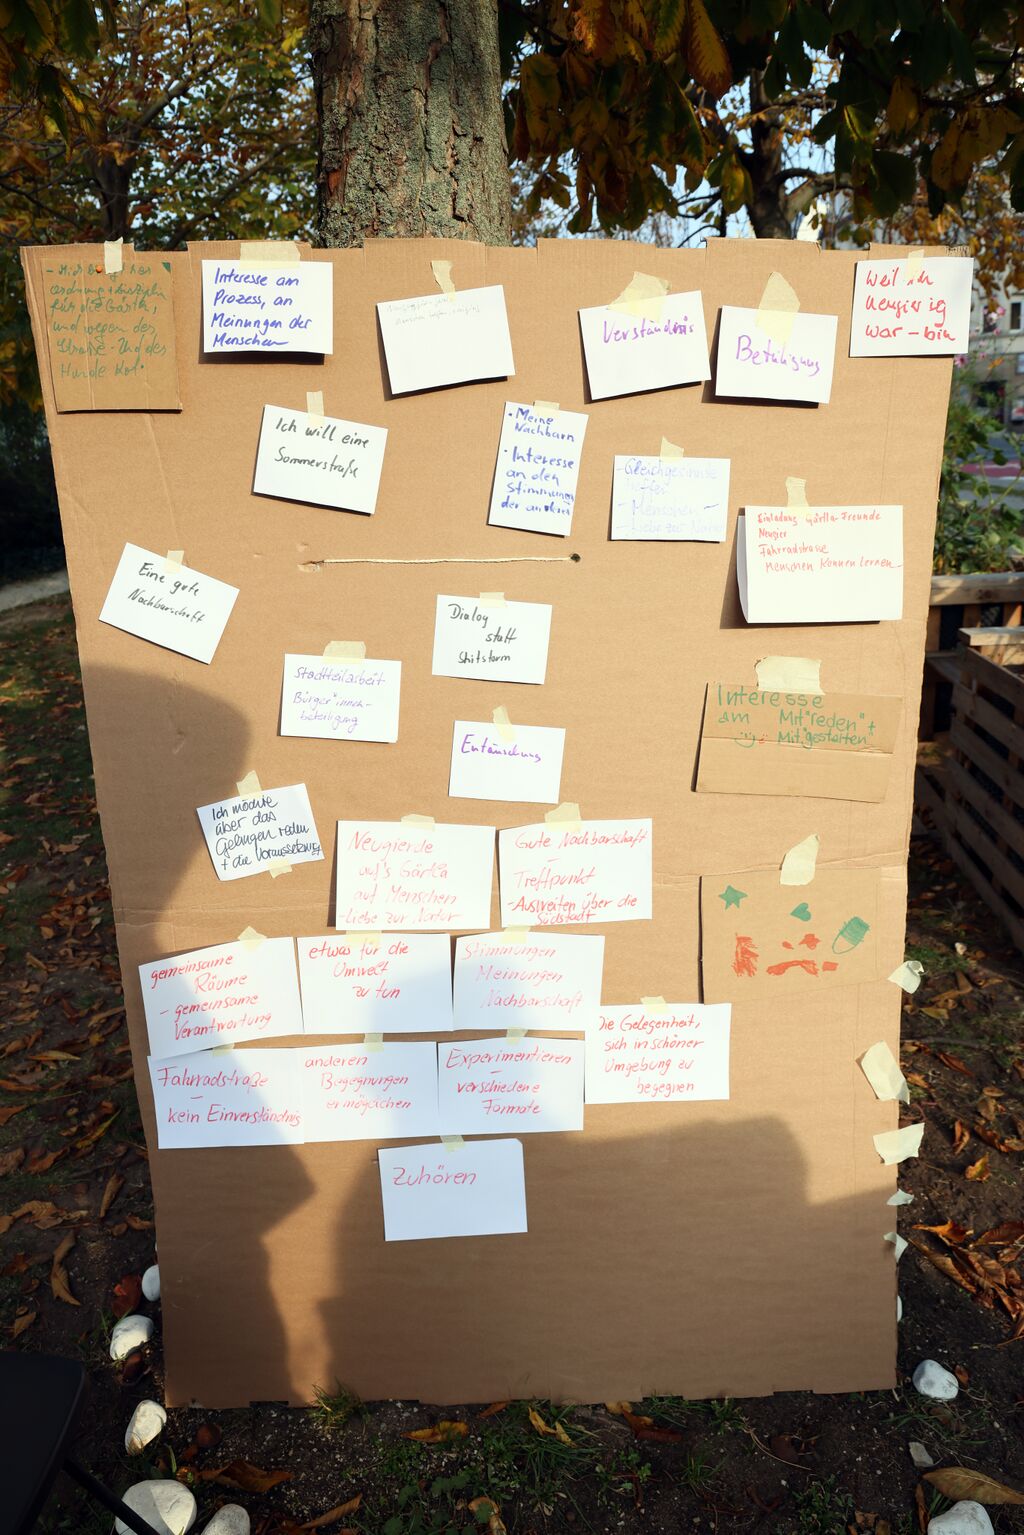 für die Gärtla,
und wegen der
Straße. Und des
Hunde Kot.
Interesse am
Prozess, an
Meinungen der
Menschen
Verständnis
Beteiligung
Weil ich
neugierig
war – bin
Ich will eine
Sommerstraße
• Meine
Nachbarn
• Interesse
an den
Stimmungen
der anderen
- Gleichgesinnte
treffen
- Menschen -
- Liebe zur Natur
Einladung Gärtla-Freunde
Neugier
Fahrradstrasse
Menschen kennen lernen
Eine gute
Nachbarschaft
Dialog
statt
Shitstorm
Stadtteilarbeit
Bürger*innen-
beteiligung
Interesse
am Mit"reden" +
Mit"gestalten"
Entäuschung
Ich möchte
über das
Gelingen reden
+ die Voraussetzung
Neugierde
auf's Gärtla
auf Menschen
- Liebe zur Natur
Gute Nachbarschaft
-
Treffpunkt
- Ausweiten über die
Südstadt
gemeinsame
Räume
- gemeinsame
Verantwortung
etwas für die
Umwelt
zu tun
Stimmungen
Meinungen
Nachbarschaft
Die Gelegenheit,
sich in schöner
Umgebung zu
begegnen
Fahrradstraße
-
kein Einverständnis
anderen
Begegnungen
ermöglichen
Experimentieren
-
verschiedene
Formate
Zuhören